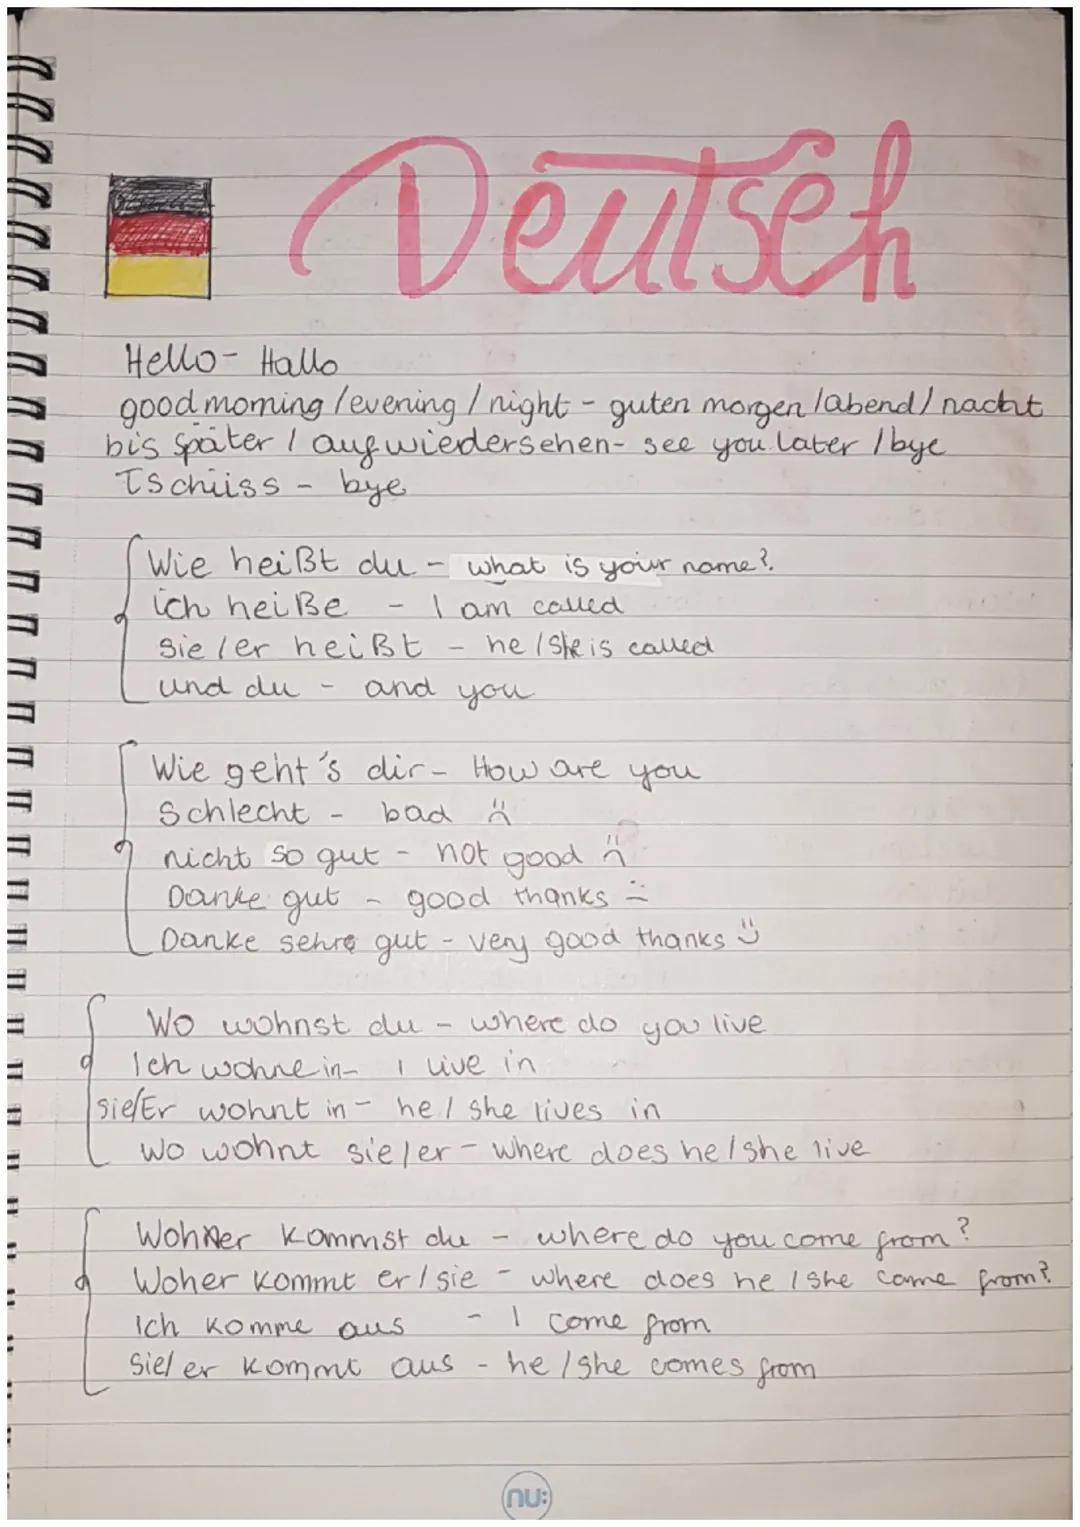 Deutsch
Hello - Hallo
good morning / evening / night - guten morgen / abend / nacht
bis später / auf wiedersehen - see you later / bye
Tschüss - bye
Wie heißt du - what is your name?
ich heiße - I am called
sie / er heißt - he / she is called
und du - and you
Wie geht's dir - How are you
Schlecht - bad
nicht so gut - not good
Danke gut - good thanks
Danke sehr gut - very good thanks
Wo wohnst du - where do you live
Ich wohne in - I live in
sie/Er wohnt in - he / she lives in
Wo wohnt sie / er - where does he / she live
Woher kommst du - where do you come from?
Woher kommt er / sie - where does he / she come from?
Ich komme aus - I come from
Sie / er kommt aus - he / she comes from
nu: